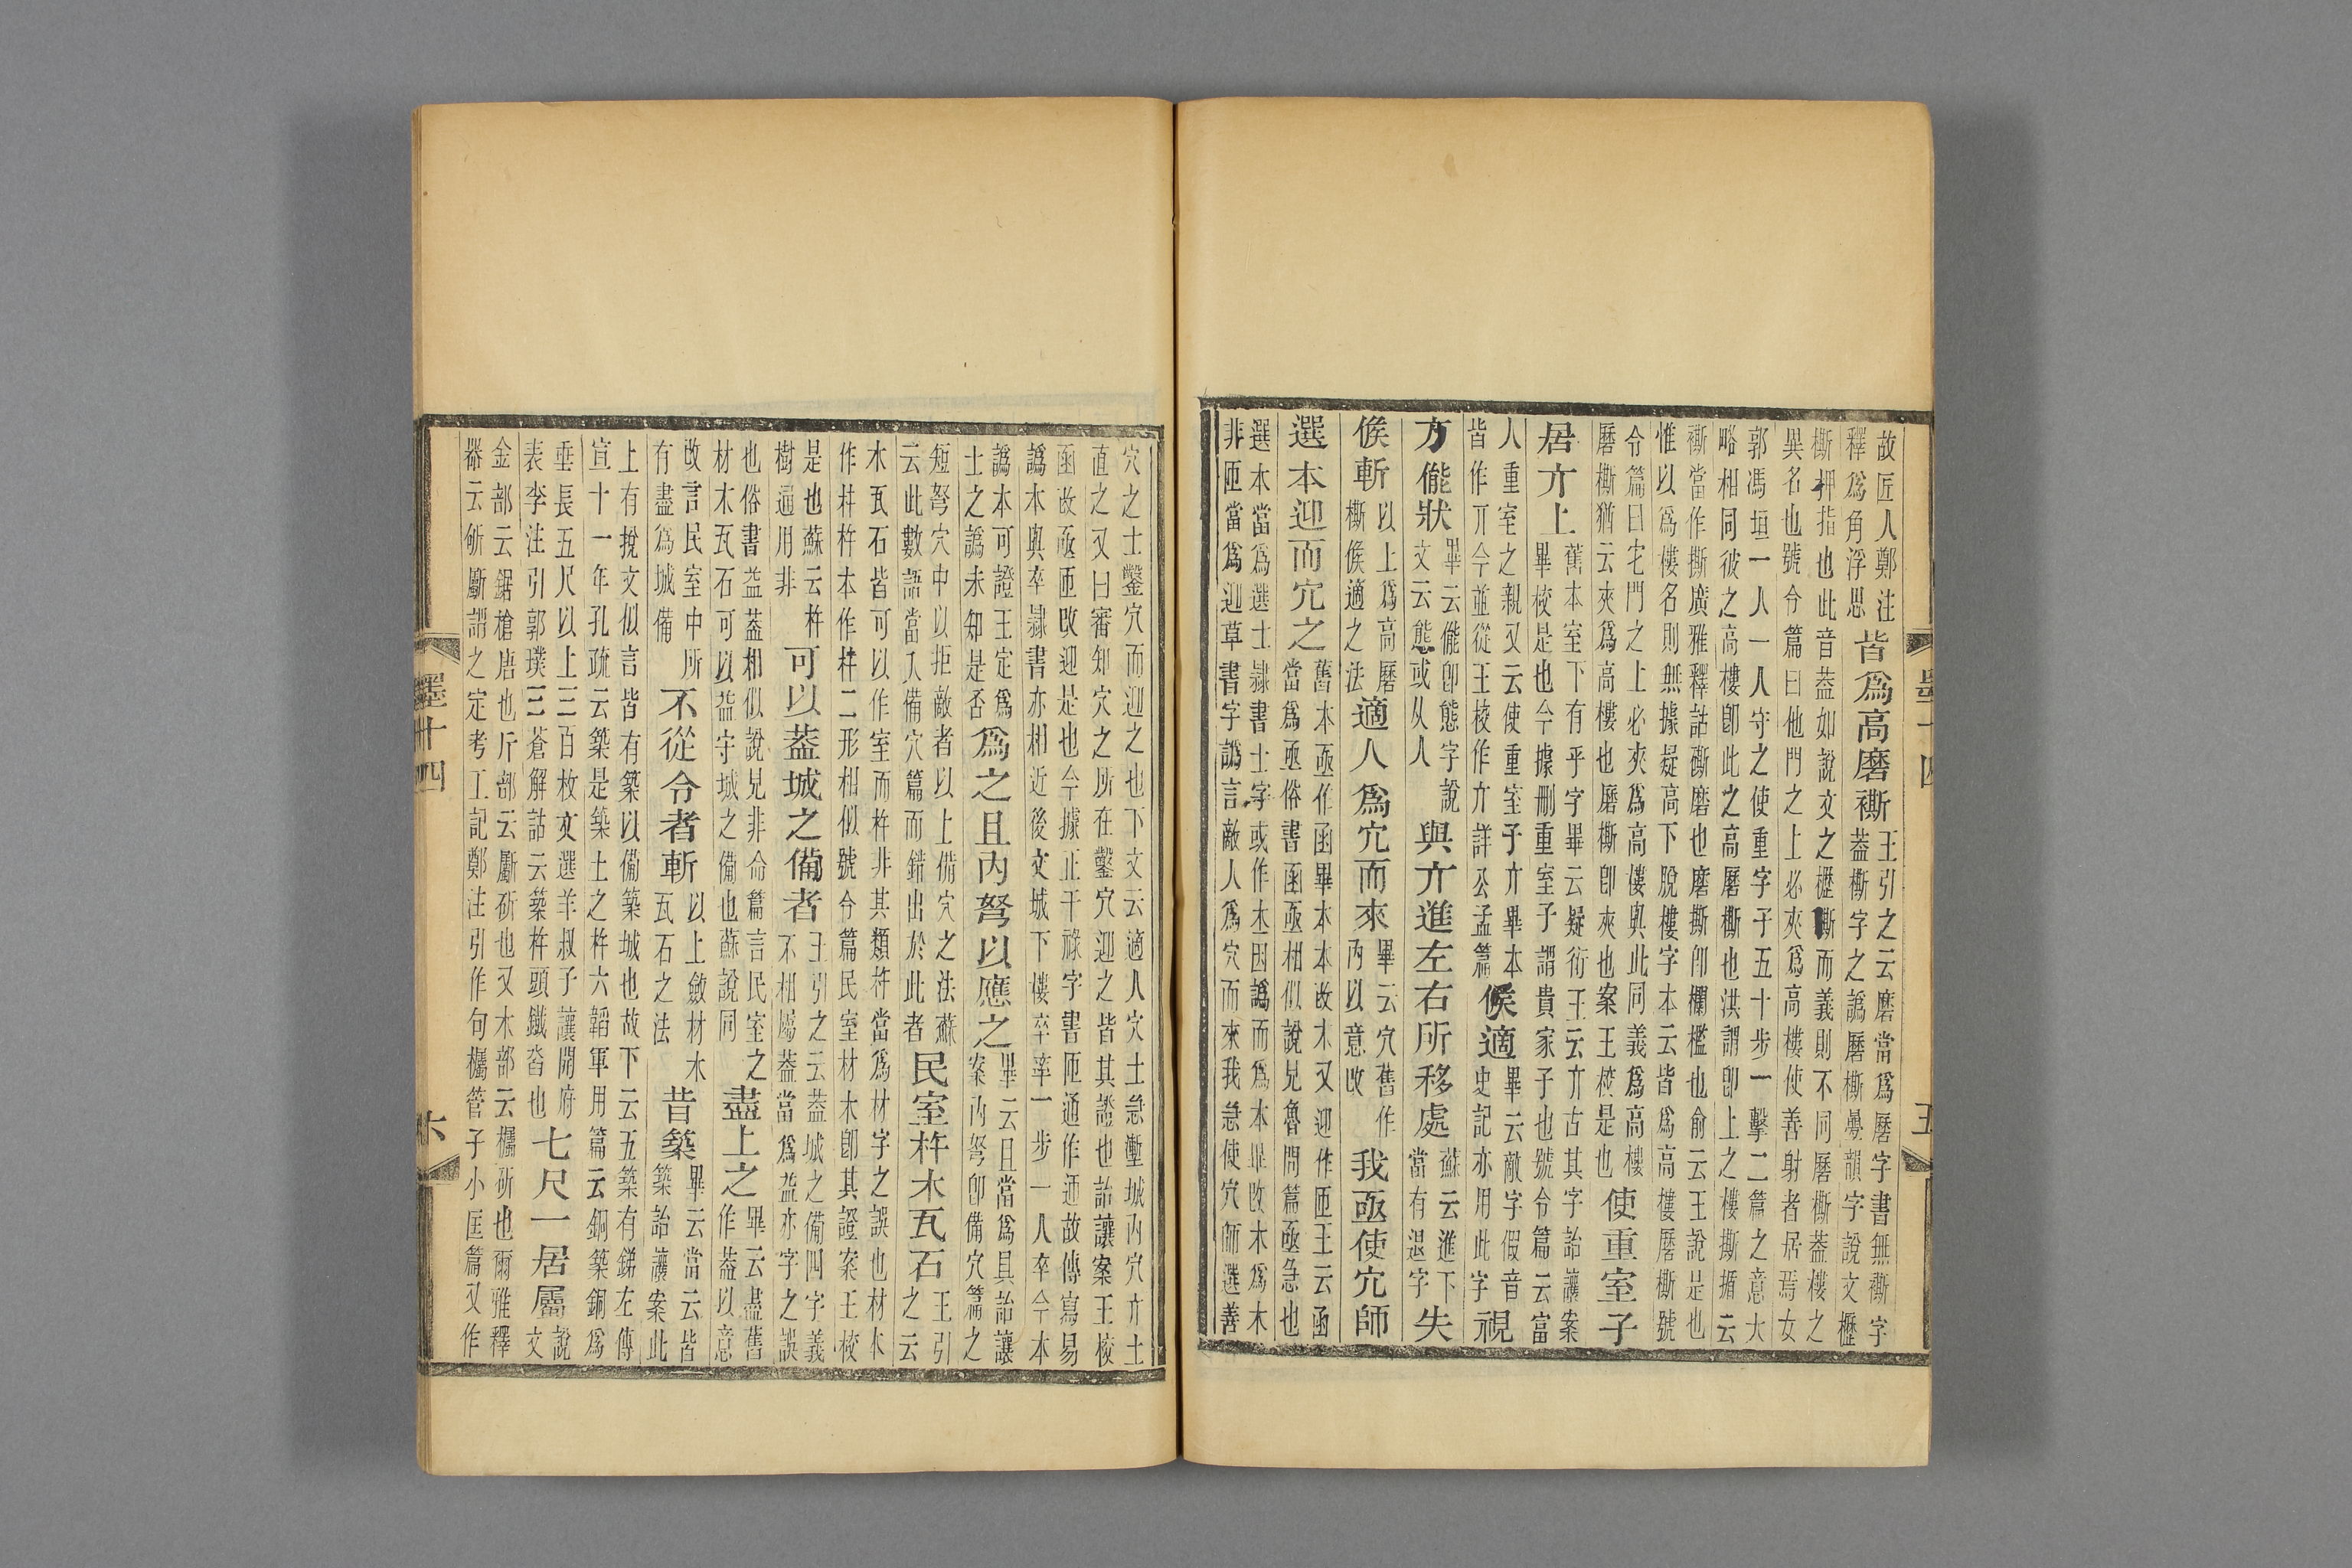 故匠人鄭注釋爲角浮思皆爲高磨䙛王引之云磨當爲㽁字書無䙛字蓋㯕字之譌㽁㯕疊韻字說文櫪
㯕柙指也此音蓋如說文之櫪㯕而義則不同㽁㯕蓋樓之異名也號令篇曰他門之上必夾爲高樓使善射者居焉女
郭馮垣一人一人守之使重字子五十步一擊二篇之意大略相同彼之高樓卽此之高㽁㯕也洪謂卽上之樓撕揗云
䙛當作撕廣雅釋詁磃磨也磨撕卽欄檻也俞云王說是也惟以爲樓名則無據疑高下脫樓字本云皆爲高樓㽁㯕號
令篇曰宅門之上必夾爲高樓與此同義爲高樓磨㯕猶云夾爲高樓也磨㯕卽夾也案王校是也使重室子
居亣上舊本室下有乎字畢云疑衍王云亣古其字詒讓案畢校是也今據刪重室子謂貴家子也號令篇云富
人重室之親又云使重室子亣畢本皆作丌今並從王校作亣詳公孟篇候適畢云敵字假音史記亦用此字視
亣儱狀畢云儱卽態字說文云態或从人與亣進左右所移處蘇云進下當有退字失
候斬以上爲高磨㯕候適之法適人爲穴而來畢云穴舊作內以意改我亟使穴師
選本迎而穴之舊本亟作函畢本本改木又迎作匝王云函當爲亟俗書函亟相似說見魯問篇亟急也
選本當爲選士隸書士字或作因譌而爲本畢改木爲木非匝當爲迎草書字譌言敵人爲穴而來我急使穴師選善
墨十四 五
穴之士鑿穴而迎之也下文云適人穴土急塹城內穴亣土直之又曰審知穴之所在鑿穴迎之皆其證也詒讓案王校
函改亟匝改迎是也今據正干祿字書匝通作迊故傳寫易譌本與卒隸書亦相近後文城下樓卒率一步一人卒今本
譌本可證王定爲士之譌未知是否爲之且內弩以應之畢云且當爲具詒讓案內弩卽備穴篇之
短弩穴中以拒敵者以上備穴之法蘇云此數語當入備穴篇而錯出於此者民室杵木瓦石王引之云
木瓦石皆可以作室而杵非其類杵當爲材字之誤也材木作杵杵本作杵二形相似號令篇民室材木卽其證案王校
是也蘇云杵樹通用非可以蓋城之備者王引之云蓋城之備四字義不相屬蓋當爲益亦字之誤
也俗書益蓋相似說見非命篇言民室之材木瓦石可以益守城之備也蘇說同盡上之畢云盡舊作蓋以意
改言民室中所有盡爲城備不從令者斬以上斂材木瓦石之法昔築畢云當云皆築詒讓案此
上有挩文似言皆有築以備築城也故下云五築有銻左傳宣十一年孔疏云築是築土之杵六韜軍用篇云銅築銅爲
垂長五尺以上三百枚文選羊叔子讓開府表李注引郭璞三蒼解詁云築杵頭鐵沓也七尺一居屬說文
金部云鋸槍唐也斤部云斸斫也又木部云欘斫也爾雅釋器云斫斸謂之定考工記鄭注引作句欘管子小匡篇又作
墨十四 六